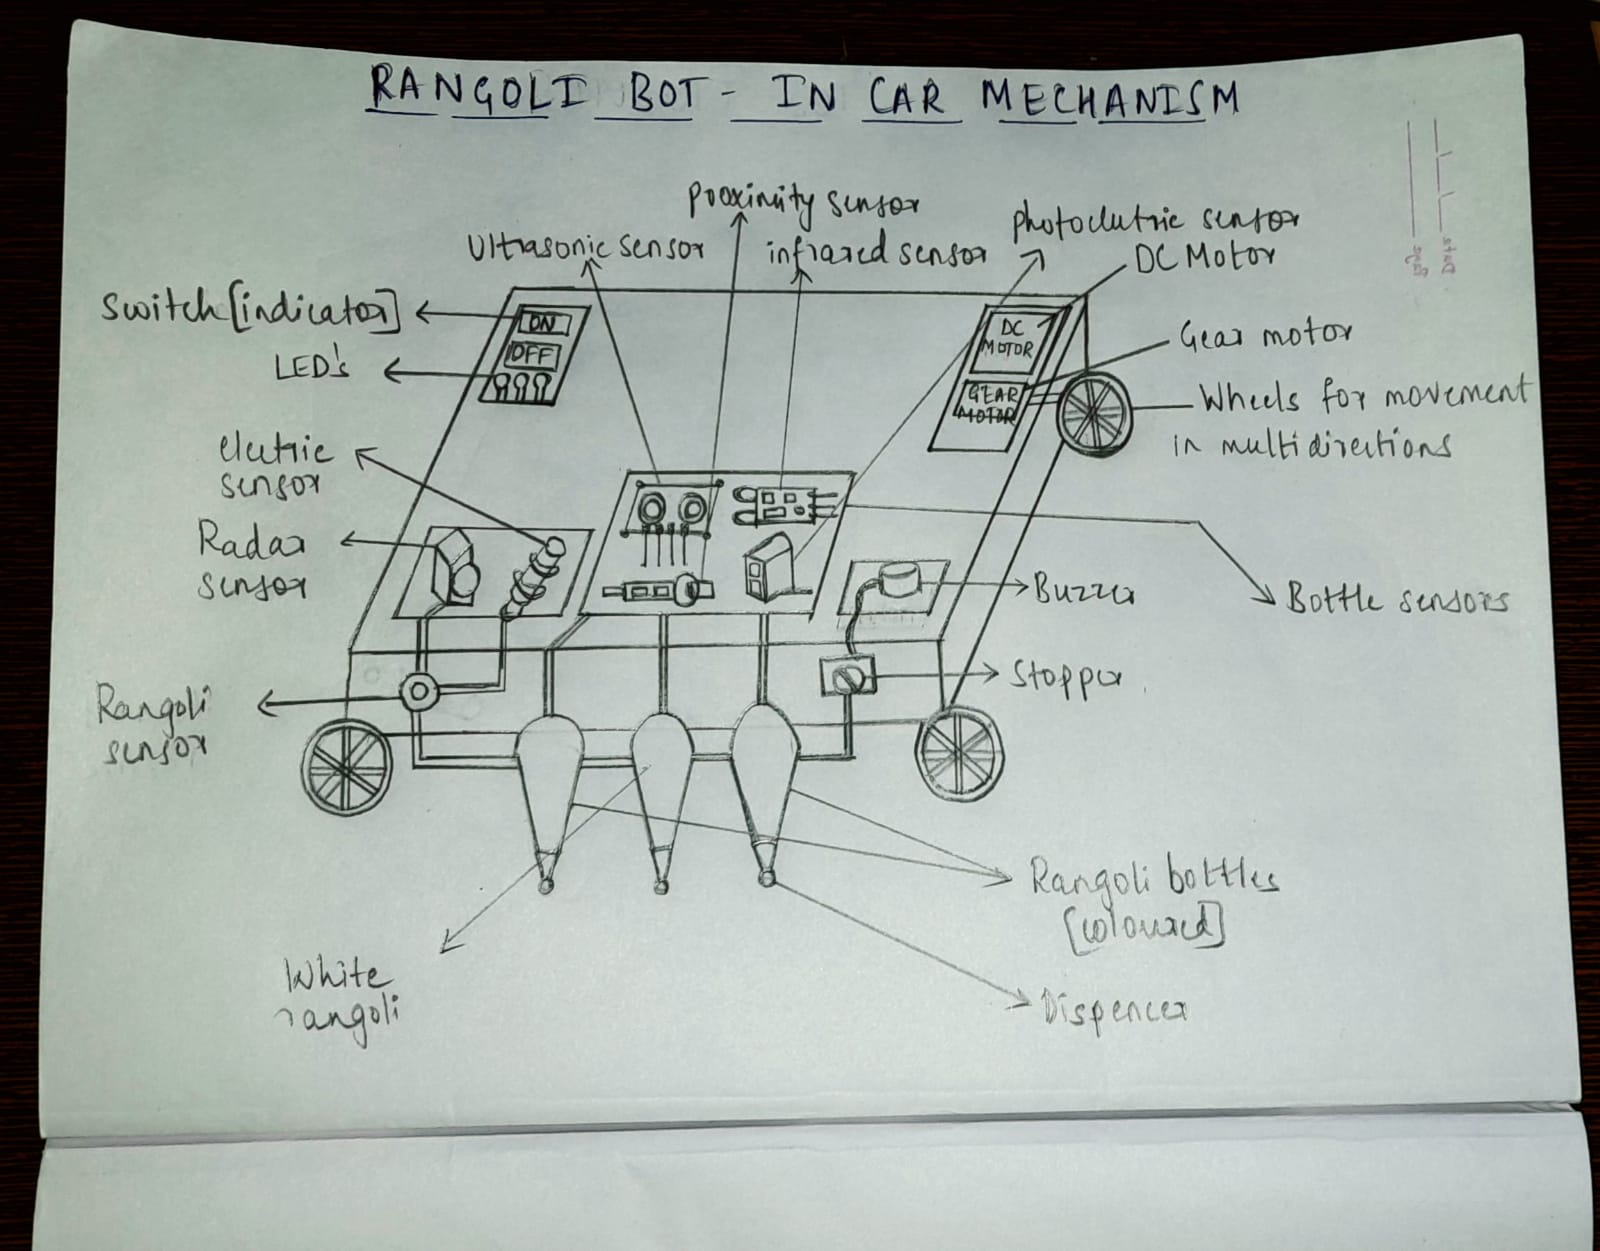 RANGOLI BOT - IN CAR MECHANISM
Proximity sensor
Ultrasonic sensor
infrared sensor
photoelectric sensor
DC Motor
Switch [indicator]
ON
OFF
LED's
DC
MOTOR
GEAR
MOTOR
Gear motor
Wheels for movement
in multidirections
electric
sensor
Radar
sensor
Buzzer
Bottle sensors
Stopper
Rangoli
sensor
Rangoli bottles
[coloured]
White
rangoli
Dispencer